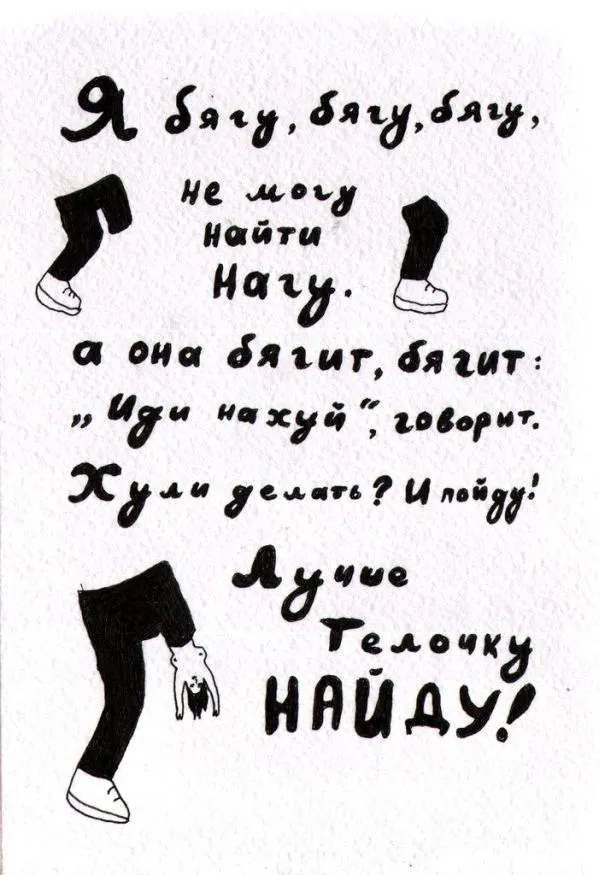 Я бягу, бягу, бягу,
не могу
найти
Нагу.
а она бягит, бягит:
„Иди нахуй“, говорит.
Хули делать? И пойду!
Лучше
Телочку
НАЙДУ!